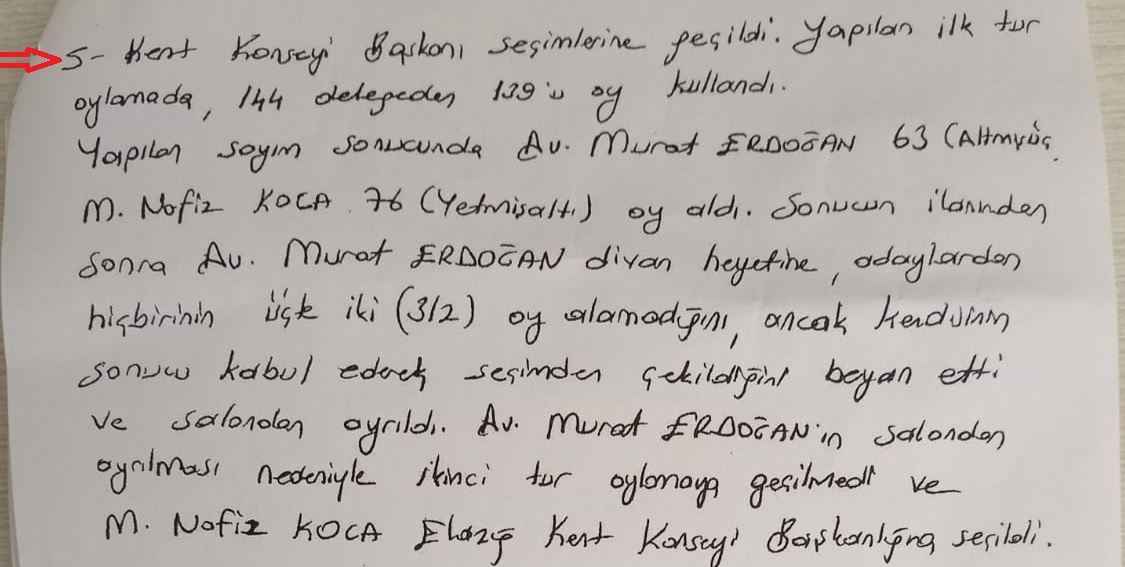 5- Kent Konseyi Başkanı seçimlerine geçildi. Yapılan ilk tur
oylamada, 144 delegeden 139'u oy kullandı.
Yapılan sayım sonucunda Av. Murat ERDOĞAN 63 (Altmışüç
M. Nafiz KOCA 76 (Yetmişaltı) oy aldı. Sonucun ilanından
sonra Av. Murat ERDOĞAN divan heyetine, adaylardan
hiçbirinin üçte iki (3/2) oy alamadığını, ancak kendisinin
sonucu kabul ederek seçimden çekildiğini beyan etti
ve salondan ayrıldı. Av. Murat ERDOĞAN'ın salondan
ayrılması nedeniyle ikinci tur oylamaya geçilmedi ve
M. Nafiz KOCA Elazığ Kent Konseyi Başkanlığına seçildi.